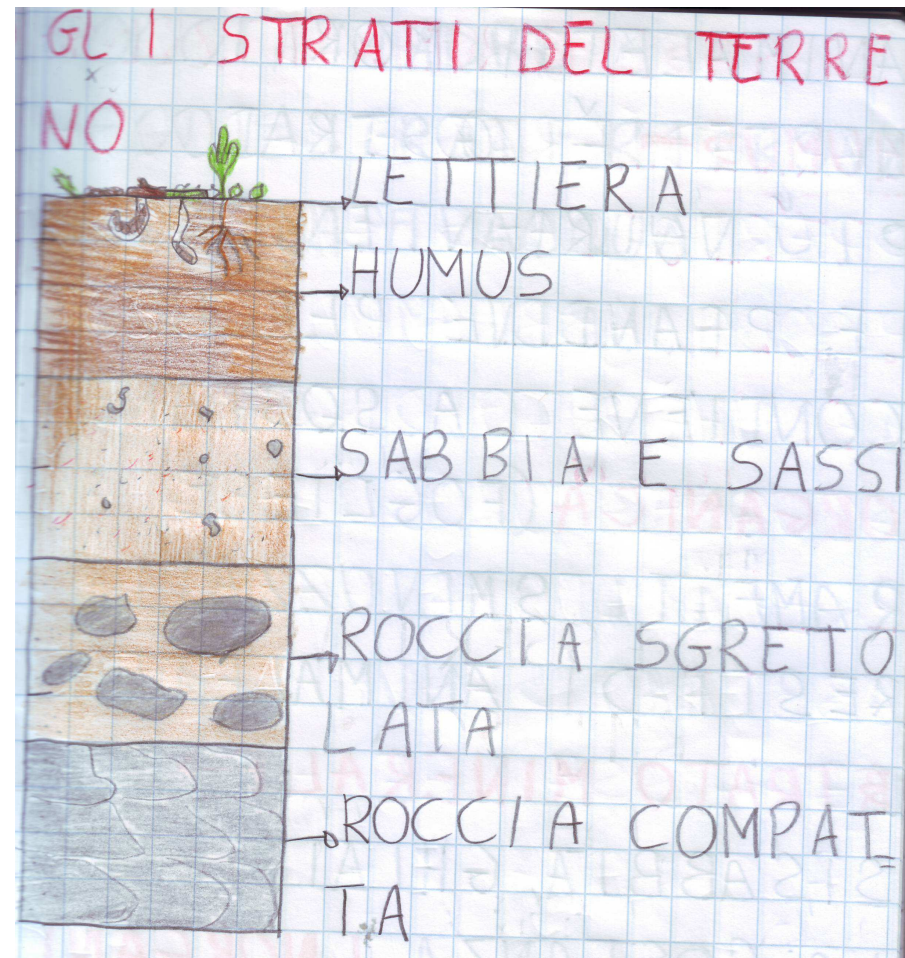 GLI STRATI DEL TERRE
NO
LETTIERA
HUMUS
SABBIA E SASSI
ROCCIA SGRETO
LATA
ROCCIA COMPAT
TA